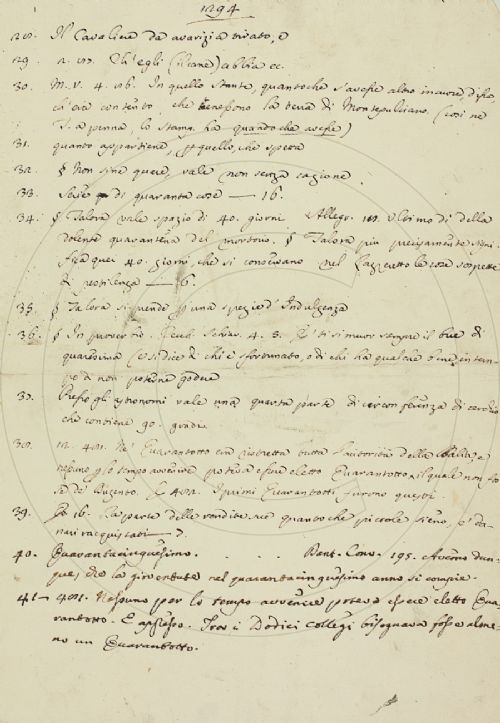 1294
28. Il Cavaliere da avarizia tirato, e
29. Ch'egli abbia ec.
30. M. V. 4. 116. In quello stante, quantoche s'avesse altro in cuore, disse
ch'era contento, che tenessono la terra di Montepulciano. (così nel
T. a penna, lo stamp. ha quando che avesse)
31. quando appartiene, quello, che spetta
32. § Non sine quare, vale non senza cagione.
33. Serie di quaranta cose — 16.
34. § Talora vale spazio di 40. giorni Allegr. Ultimo dì della
dolente quarantena del § Talora più precisamente signi-
fica que' 40. giorni, che si conservano nel Lazzeretto le cose sospette
di pestilenza — 6.
35. § Talora si prende una spezie d'Indulgenza
36. § In proverbio. 4. 3. E' ti si muor sempre il bue di
quaresima si dice di chi è sfortunato, o di chi ha qualche bene in tem-
po di non poterne godere
37. Presso gli astronomi vale una quarta parte di circonferenza di cerchio
che contiene 90. gradi.
38. Ne' Quarantotto era ristretta tutta l'autorità della Balìa, e
nessuno lo tempo avvenire poteva essere eletto Quarantotto, il quale non fos-
se de' Dugento. I primi Quarantotto furono questi
39. 16. La parte delle rendite, ne quantoche piccole sieno, e' da-
nari racquistati — 7.
40. Quarantacinquesimo. . . . . Dant. Conv. 195. Avemo dun-
que, che la gioventute nel quarantacinquesimo anno si compie.
41 — Nessuno per lo tempo avvenire poteva essere eletto Qua-
rantotto. E appresso. Tra i Dodici Collegi bisognava fosse alme-
no un Quarantotto.